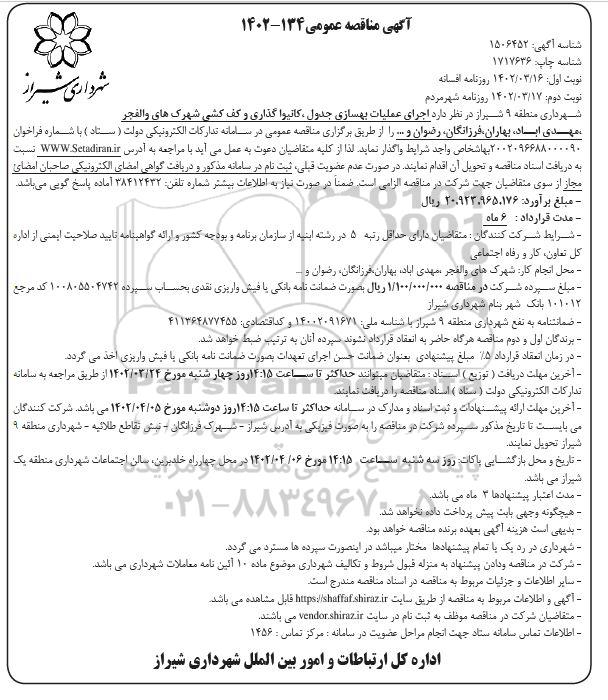 آگهی مناقصه عمومی۱۳۴-۱۴۰۲
شهرداری شیراز
شناسه آگهی: ۱۵۰۶۴۵۲
شناسه چاپ: ۱۷۱۷۶۳۶
نوبت اول: ۱۴۰۲/۰۳/۱۶ روزنامه افسانه
نوبت دوم: ۱۴۰۲/۰۳/۱۷ روزنامه شهرمردم
شهرداری منطقه ۹ شیراز در نظر دارد اجرای عملیات بهسازی جدول ،کانیوا گذاری و کف کشی شهرک های والفجر
،مهدی اباد، بهاران،فرزانگان، رضوان و ... را از طریق برگزاری مناقصه عمومی در سامانه تدارکات الکترونیکی دولت ( ستاد ) با شماره فراخوان
۲۰۰۲۰۹۶۶۸۸۰۰۰۰۹۰بهاشخاص واجد شرایط واگذار نماید. لذا از کلیه متقاضیان دعوت به عمل می آید با مراجعه به آدرس WWW.Setadiran.ir نسبت
به دریافت اسناد مناقصه و تحویل آن اقدام نمایند. در صورت عدم عضویت قبلی، ثبت نام در سامانه مذکور و دریافت گواهی امضای الکترونیکی صاحبان امضائ
مجاز از سوی متقاضیان جهت شرکت در مناقصه الزامی است. ضمناً در صورت نیاز به اطلاعات بیشتر شماره تلفن: ۳۸۴۱۲۴۳۲ آماده پاسخ گویی می‌باشد.
- مبلغ برآورد: ۲۰.۹۲۳.۹۶۵.۱۷۶ ریال
- مدت قرارداد : ۶ ماه
- شرایط شرکت کنندگان : متقاضیان دارای حداقل رتبه ۵ در رشته ابنیه از سازمان برنامه و بودجه کشور و ارائه گواهینامه تایید صلاحیت ایمنی از اداره
کل تعاون، کار و رفاه اجتماعی
- محل انجام کار: شهرک های والفجر ،مهدی اباد، بهاران،فرزانگان، رضوان و ...
- مبلغ سپرده شرکت در مناقصه ۱/۱۰۰/۰۰۰/۰۰۰ ریال بصورت ضمانت نامه بانکی یا فیش واریزی نقدی بحساب سپرده ۱۰۰۸۰۵۵۰۴۷۴۲ کد مرجع
۱۰۱۰۱۲ بانک شهر بنام شهرداری شیراز
- ضمانتنامه به نفع شهرداری منطقه ۹ شیراز با شناسه ملی: ۱۴۰۰۲۰۹۱۶۷۱ و کداقتصادی: ۴۱۱۳۶۴۸۷۷۴۵۵
- برندگان اول و دوم مناقصه هرگاه حاضر به انعقاد قرارداد نشوند سپرده آنان به ترتیب ضبط خواهد شد.
- در زمان انعقاد قرارداد ۵٪ مبلغ پیشنهادی بعنوان ضمانت حسن اجرای تعهدات بصورت ضمانت نامه بانکی یا فیش واریزی اخذ می گردد.
- آخرین مهلت دریافت ( توزیع ) اسناد : متقاضیان میتوانند حداکثر تا ساعت ۱۴:۱۵روز چهار شنبه مورخ ۱۴۰۲/۰۳/۲۴ از طریق مراجعه به سامانه
تدارکات الکترونیکی دولت ( ستاد ) اسناد مناقصه را دریافت نمایند.
- آخرین مهلت ارائه پیشنهادات و ثبت اسناد و مدارک در سامانه حداکثر تا ساعت ۱۴:۱۵روز دوشنبه مورخ ۱۴۰۲/۰۴/۰۵ می باشد. شرکت کنندگان
می بایست تا تاریخ مذکور سپرده شرکت در مناقصه را به صورت فیزیکی به آدرس شیراز - شهرک فرزانگان - نبش تقاطع طلائیه - شهرداری منطقه ۹
شیراز تحویل نمایند.
- تاریخ و محل بازگشایی پاکات: روز سه شنبه ساعت ۱۴:۱۵ مورخ ۱۴۰۲/۰۴/۰۶ در محل چهارراه خلدبرین، سالن اجتماعات شهرداری منطقه یک
شیراز می باشد.
- مدت اعتبار پیشنهادها ۳ ماه می باشد.
- هیچگونه وجهی بابت پیش پرداخت داده نخواهد شد.
- بدیهی است هزینه آگهی بعهده برنده مناقصه خواهد بود.
- شهرداری در رد یک یا تمام پیشنهادها مختار میباشد در اینصورت سپرده ها مسترد می گردد.
- شرکت در مناقصه ودادن پیشنهاد به منزله قبول شروط و تکالیف شهرداری موضوع ماده ۱۰ آئین نامه معاملات شهرداری می باشد.
- سایر اطلاعات و جزئیات مربوط به مناقصه در اسناد مناقصه مندرج است.
- آگهی و اطلاعات مربوط به مناقصه از طریق سایت https://shaffaf.shiraz.ir قابل مشاهده می باشد.
- متقاضیان شرکت در مناقصه موظف به ثبت نام در سایت vendor.shiraz.ir می باشند.
- اطلاعات تماس سامانه ستاد جهت انجام مراحل عضویت در سامانه : مرکز تماس : ۱۴۵۶
اداره کل ارتباطات و امور بین الملل شهرداری شیراز
۰۲۱-۸۸۳۴۹۶۷۰-۵